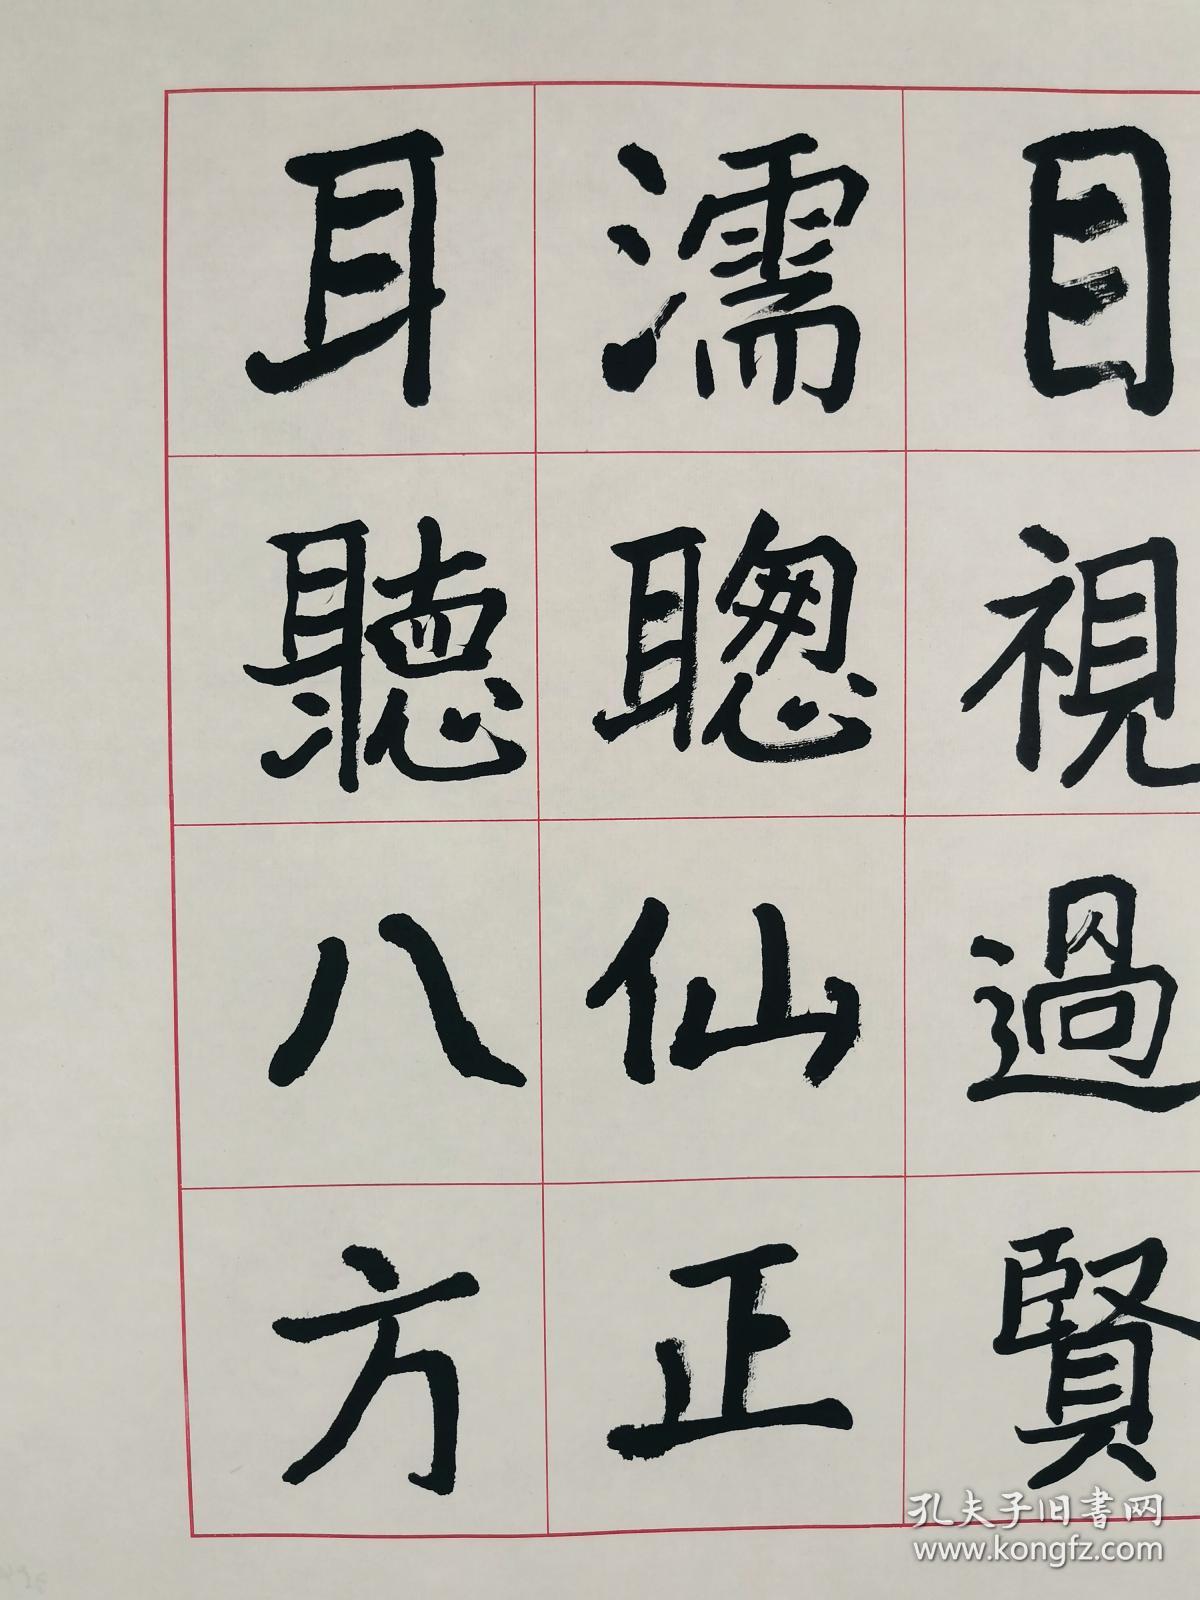 耳濡目
聽聰視
八仙過
方正賢
孔夫子旧書网
www.kongfz.com